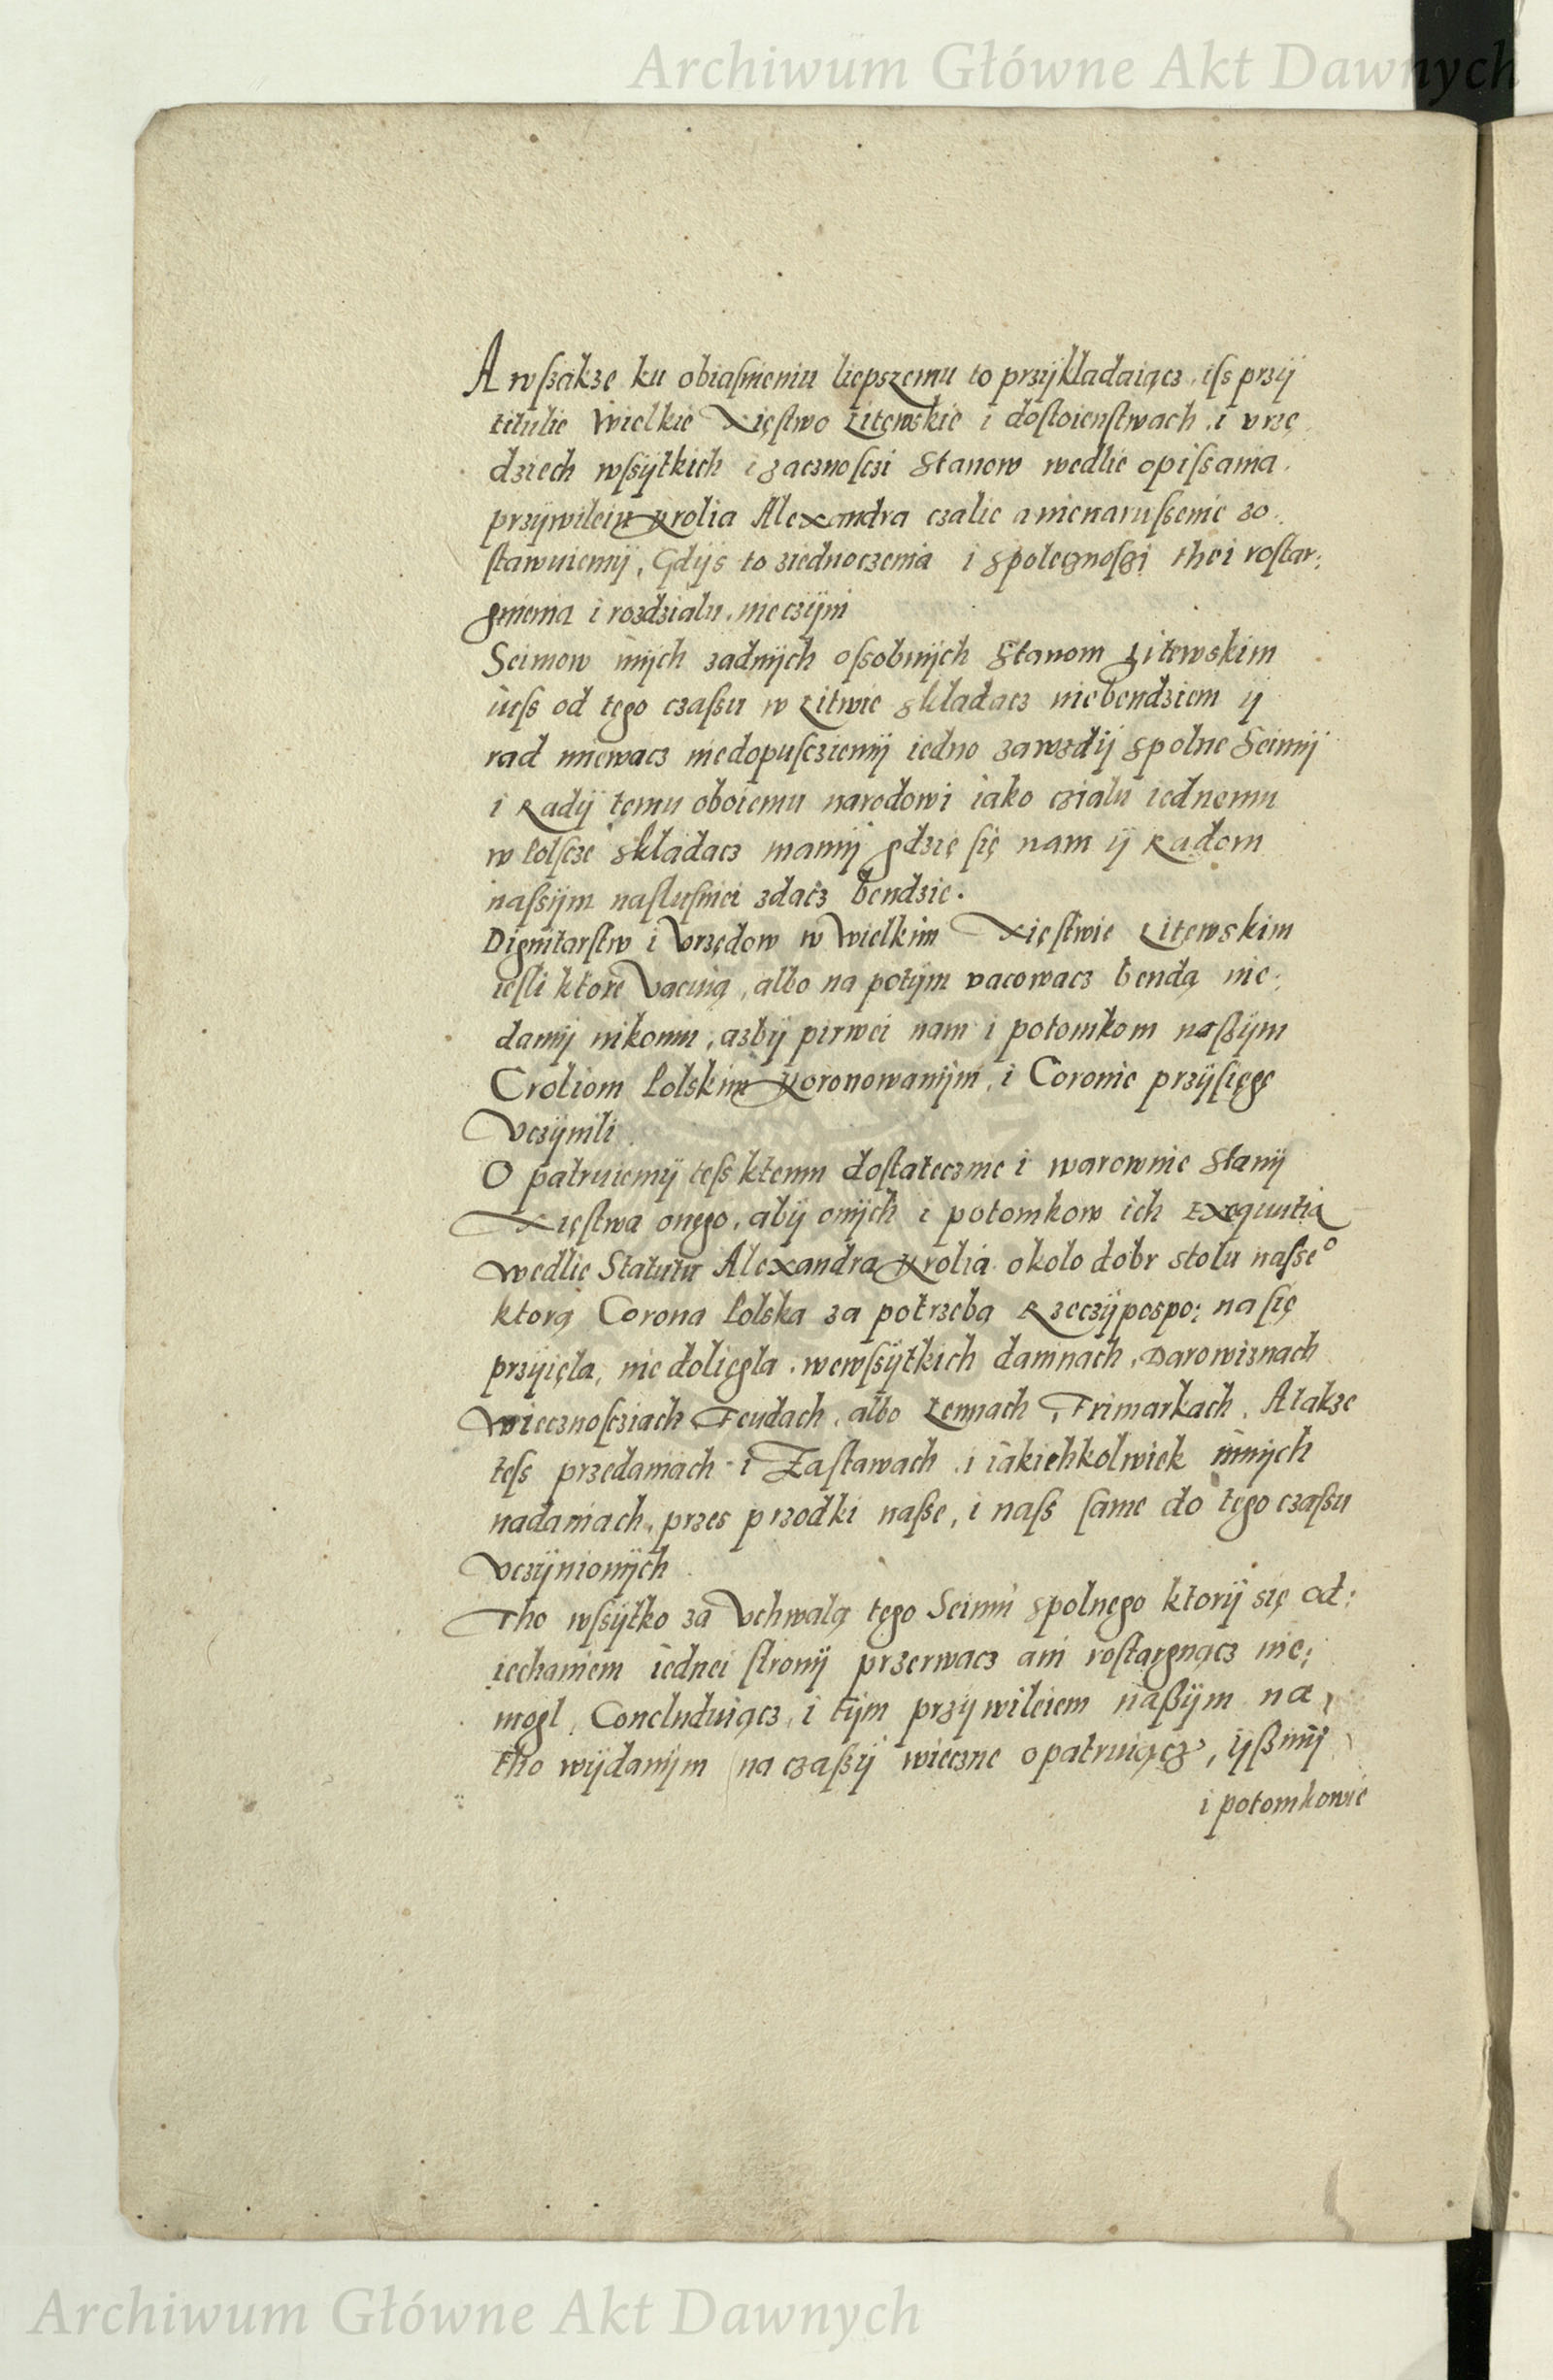 Archiwum Główne Akt Dawnych
A wſsakze ku obiaſnieniu liepszemu to przÿkladaiącz, iſs przÿ
titulie Wielkie Xięſtwo Litewskie i doſtoienſtwach, i vrzę
dziech wſsÿtkich i zacznoſczi Stanow wedlie opiſsania
przÿwileiu Krolia Alexandra czalie a nienaruſsenie zo
ſtawuiemÿ, Gdÿs to ziednoczenia i spolecznoſczi thei roſtar:
gnienia i rozdzialu nieczÿni
Seimow inÿch zadnÿch oſsobnÿch Stanom Litewskim
iuſs od tego czaſsu w Litwie skladacz niebendziem ÿ
rad miewacz niedopuſcziemÿ iedno zawzdÿ spolne Seimÿ
i Radÿ temu oboiemu narodowi iako czialu iednemu
w Polſcze skladacz mamÿ gdzie ſię nam ÿ Radom
naſsÿm naſluſniei zdacz bendzie.
Dignitarſtw i Vrzędow w Wielkim Xięſtwie Litewskim
ieſli ktore Vacuią, albo na potÿm vacowacz bendą nie:
damÿ nikomu, azbÿ pirwei nam i potomkom naſzÿm
Croliom Polskim Koronowanÿm, i Coronie przÿſięgę
Vczÿnili
O patruiemÿ teſs ktemu doſtatecznie i warownie Stanÿ
Xięſtwa onego, abÿ onÿch i potomkow ich Exequutia
wedlie Statutu Alexandra Krolia okolo dobr stolu naſseº
ktorą Corona Polska za potrzebą Rzeczÿpospo: na ſię
przÿięla, nie doliegla, wewſsÿtkich daninach, Darowiznach
Wiecznoſcziach Feudach, albo Lennach, Frimarkach, A takze
teſs przedaniach i Zaſtawach, i iakichkolwiek innÿch
nadaniach, przes przodki naſse, i naſs ſame do tego czaſsu
Vczÿnionÿch
Tho wſsÿtko za Vchwalą tego Seimu spolnego ktorÿ się od:
iechaniem iednei ſtronÿ przerwacz ani roſtargnącz nie:
mogl, Concluduiącz, i tÿm przÿwileiem naſzÿm na
tho wÿdanÿm na czaſzÿ wieczne opatruiącz, ÿſzmÿ
i potomkowie
Archiwum Główne Akt Dawnych